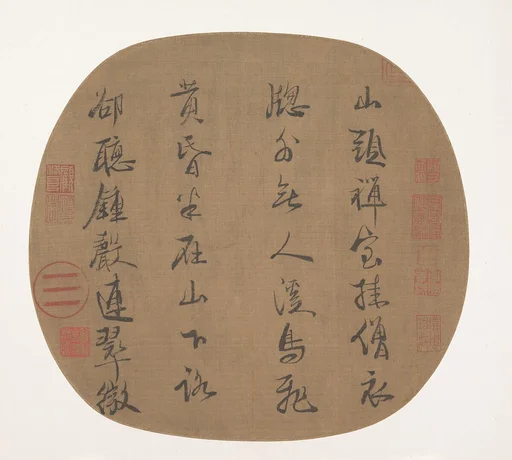 山頭禪室挂僧衣
牕外無人溪鳥飛
黄昏半在山下路
卻聽鍾聲連翠微